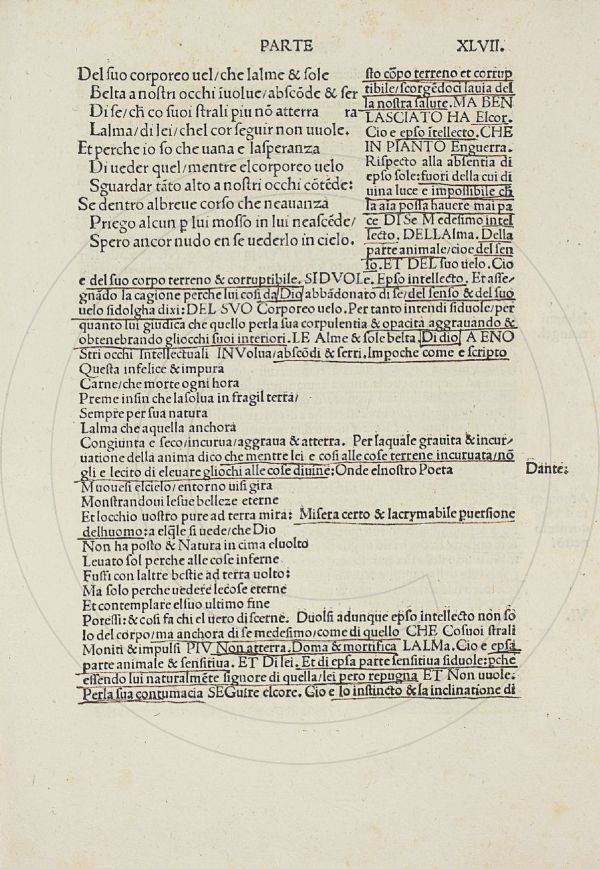 PARTE XLVII.
Del suo corporeo uel/che lalme & sole
Belta a nostri occhi īuolue/abscōde & ser
Di se/ch̄ co suoi strali piu nō atterra ra-
Lalma/di lei/chel cor seguir non uuole.
Et perche io so che uana e lasperanza
Di ueder quel/mentre elcorporeo uelo
Sguardar tāto alto a nostri occhi cōtēde:
Se dentro albreue corso che neauanza
Priego alcun p lui mosso in lui neascēde/
Spero ancor nudo en se uederlo in cielo.
sto cōpo terreno et corrup
tibile/scorgēdoci lauia del
la nostra salute. MA BEN
LASCIATO HA Elcor.
Cio e epso ītellecto. CHE
IN PIANTO Enguerra.
Rispecto alla absentia di
epso sole: fuori della cui di
uina luce e impossibile ch̄
la aīa possa hauere mai pa
ce DI Se Medesimo intel
lecto. DELLAlma. Della
parte animale/cioe del sen
so. ET DEL suo uelo. Cio
e del suo corpo terreno & corruptibile. SIDVOLE. Epso intellecto. Et asse-
gnādo la cagione perche lui cosi da Dio abbādonato di se/del senso & del suo
uelo sidolgha dixi: DEL SVO Corporeo uelo. Per tanto intendi siduole/per
quanto lui giudica che quello perla sua corpulentia & opacità aggrauando &
obtenebrando gliocchi suoi interiori. LE Alme & sole belta. Di dio/ A ENO
Stri occhi Intellectuali INVolua/abscōdi & serri. Impoche come e scripto
Questa infelice & impura
Carne/che morte ogni hora
Preme insin che lasolua in fragil terra/
Sempre per sua natura
Lalma che aquella anchora
Congiunta e seco/incurua/aggraua & atterra. Per laquale grauita & incur-
uatione della anima dico che mentre lei e cosi alle cose terrene incuruata/nō
gli e lecito di eleuare gliochi alle cose diuine: Onde elnostro Poeta
Dante.
Muouesi elcielo/entorno uisi gira
Monstrandoui lesue belleze eterne
Et locchio uostro pure ad terra mira: Misera certo & lacrymabile puersione
delhuomo: a elq̄le si uede/che Dio
Non ha posto & Natura in cima eluolto
Leuato sol perche alle cose inferne
Fussi con laltre bestie ad terra uolto:
Ma solo perche uedere lecose eterne
Et contemplare elsuo ultimo fine
Potessi: & cosi fa chi el uero discerne. Duolsi adunque epso intellecto non so
lo del corpo/ma anchora di se medesimo/come di quello CHE Co suoi strali
Moniti & impulsi PIV Non atterra. Doma & mortifica LALMa. Cio e epsa
parte animale & sensitiua. ET Di lei. Et di epsa parte sensitiua siduole: pche
essendo lui naturalmēte signore di quella/lei pero repugna ET Non uuole.
Per la sua contumacia SEGuire elcore. Cio e lo instincto & la inclinatione di